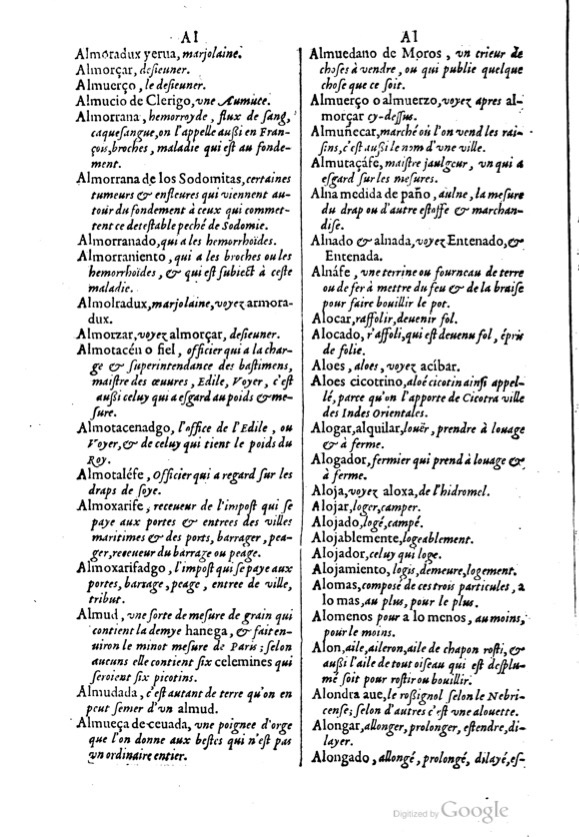 AI
Almoradux yerua, marjolaine.
Almorçar, desieuner.
Almuerço, le desieuner.
Almucio de Clerigo, vne Aumuce.
Almorrana, hemorroyde, flux de sang,
caquesangue, on l'appelle außi en Fran-
çois, broches, maladie qui est au fonde-
ment.
Almorrana de los Sodomitas, certaines
tumeurs & enfleures qui viennent au-
tour du fondement à ceux qui commet-
tent ce detestable peché de Sodomie.
Almorranado, qui a les hemorrhoïdes.
Almorraniento, qui a les broches ou les
hemorrhoïdes, & qui est subiect à ceste
maladie.
Almolradux, marjolaine, voyez armora-
dux.
Almorzar, voyez almorçar, desieuner.
Almotacén o fiel, officier qui a la char-
ge & superintendance des bastimens,
maistre des œuures, Edile, Voyer, c'est
außi celuy qui a esgard au poids & me-
sure.
Almotacenadgo, l'office de l'Edile, ou
Voyer, & de celuy qui tient le poids du
Roy.
Almotaléfe, Officier qui a regard sur les
draps de soye.
Almoxarife, receueur de l'impost qui se
paye aux portes & entrees des villes
maritimes & des ports, barrager, pea-
ger, receueur du barrage ou peage.
Almoxarifadgo, l'impost qui se paye aux
portes, barrage, peage, entree de ville,
tribut.
Almud, vne sorte de mesure de grain qui
contient la demye hanega, & fait en-
uiron le minot mesure de Paris; selon
aucuns elle contient six celemines qui
seroient six picotins.
Almudada, c'est autant de terre qu'on en
peut semer d'vn almud.
Almueça de ceuada, vne poignee d'orge
que l'on donne aux bestes qui n'est pas
vn ordinaire entier.
AI
Almuedano de Moros, vn trieur de
choses à vendre, ou qui publie quelque
chose que ce soit.
Almuerço o almuerzo, voyez apres al-
morçar cy-dessus.
Almuñecar, marché où l'on vend les rai-
sins, c'est außi le nom d'vne ville.
Almutaçáfe, maistre jaulgeur, vn qui a
esgard sur les mesures.
Alna medida de paño, aulne, la mesure
du drap ou d'autre estoffe & marchan-
dise.
Alnado & alnada, voyez Entenado, &
Entenada.
Alnáfe, vne terrine ou fourneau de terre
ou de fer à mettre du feu & de la braise
pour faire bouillir le pot.
Alocar, raffolir, deuenir fol.
Alocado, r'affoli, qui est deuenu fol, épris
de folie.
Aloes, aloes, voyez acíbar.
Aloes cicotrino, aloé cicotin ainsi appel-
lé, parce qu'on l'apporte de Cicotra ville
des Indes Orientales.
Alogar, alquilar, louër, prendre à louage
& à ferme.
Alogador, fermier qui prend à louage &
à ferme.
Aloja, voyez aloxa, de l'hidromel.
Alojar, loger, camper.
Alojado, logé, campé.
Alojablemente, logeablement.
Alojador, celuy qui loge.
Alojamiento, logis, demeure, logement.
Alomas, composé de ces trois particules, a
lo mas, au plus, pour le plus.
Alomenos pour a lo menos, au moins,
pour le moins.
Alon, aile, aileron, aile de chapon rosti, &
außi l'aile de tout oiseau qui est desplu-
mé soit pour rostir ou bouillir.
Alondra aue, le roßignol selon le Nebri-
cense; selon d'autres c'est vne alouette.
Alongar, allonger, prolonger, estendre, di-
layer.
Alongado, allongé, prolongé, dilayé, es-
Digitized by Google